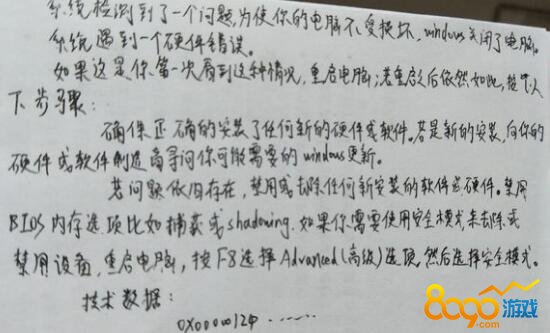 系统检测到了一个问题,为使你的电脑不受损坏,windows关闭了电脑。
系统遇到一个硬件错误。
如果这是你第一次看到这种情况,重启电脑;若重启之后依然如此,按
下步骤:
确保正确的安装了任何新的硬件或软件。若是新的安装,向你的
硬件或软件制造商寻问你可能需要的windows更新。
若问题依旧存在,禁用或去除任何新安装的软件或硬件。禁用
BIOS内存选项比如捕获或shadowing.如果你需要使用安全模式来去除或
禁用设备,重启电脑,按F8选择Advanced(高级)选项,然后选择安全模式。
技术数据:
0X00000124 ······
8090游戏